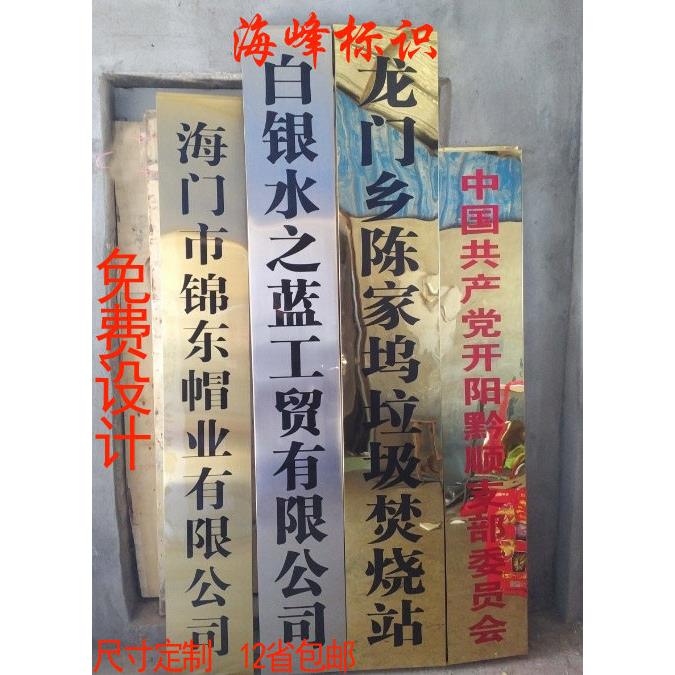 海峰标识
海门市锦东帽业有限公司
白银水之蓝工贸有限公司
龙门乡陈家坞垃圾焚烧站
中国共产党开阳黔顺支部委员会
免费设计
尺寸定制 12省包邮